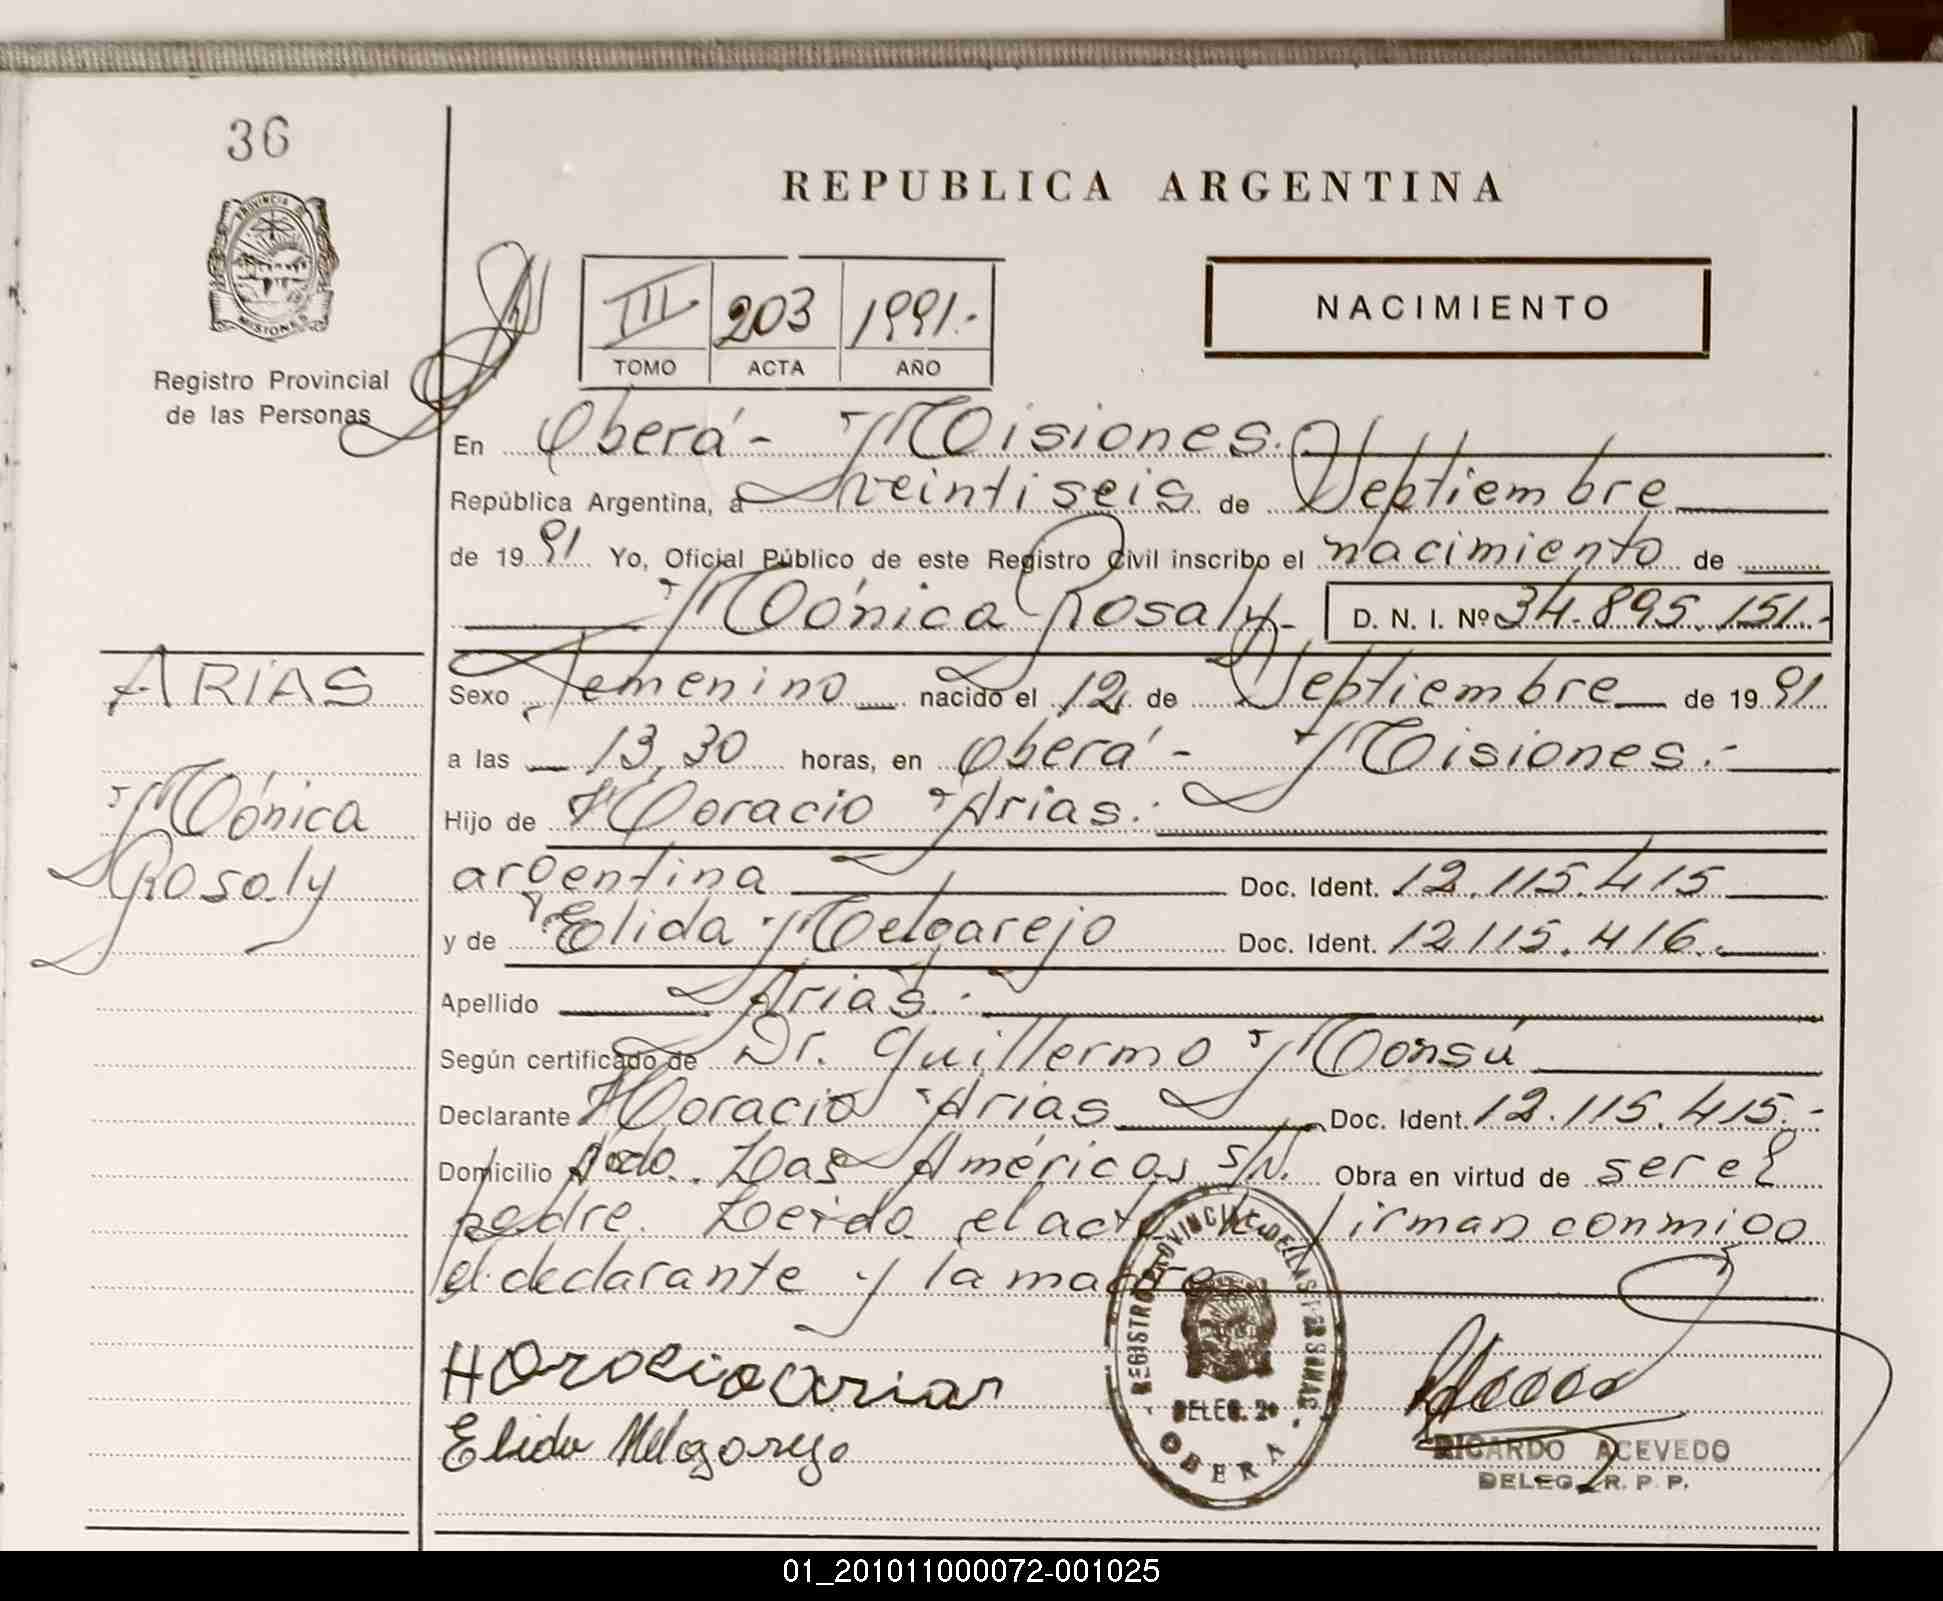 36
REPUBLICA ARGENTINA
PROVINCIA DE
MISIONES
Registro Provincial
de las Personas
III 203 1991.-
TOMO ACTA AÑO
NACIMIENTO
En Oberá - Misiones.
República Argentina, a veintiseis de Septiembre
de 1991 Yo, Oficial Público de este Registro Civil inscribo el nacimiento de
Mónica Rosaly - D. N. I. Nº 34.895.151.-
ARIAS
Mónica
Rosaly
Sexo Femenino nacido el 12 de Septiembre de 1991
a las 13,30 horas, en Oberá - Misiones.-
Hijo de Horacio Arias.
argentina Doc. Ident. 12.115.415
y de Elida Melgarejo Doc. Ident. 12115.416.
Apellido Arias.
Según certificado de Dr. Guillermo Monsú
Declarante Horacio Arias Doc. Ident. 12.115.415.-
Domicilio Las Américas S/N. Obra en virtud de ser el
padre. Leida el acta firman conmigo
el declarante y la madre
Horacio Arias
Elida Melgarejo
REGISTRO PROVINCIAL DE LAS PERSONAS
DELEG. 2ª
OBERA
RICARDO ACEVEDO
DELEG. R. P. P.
01_201011000072-001025